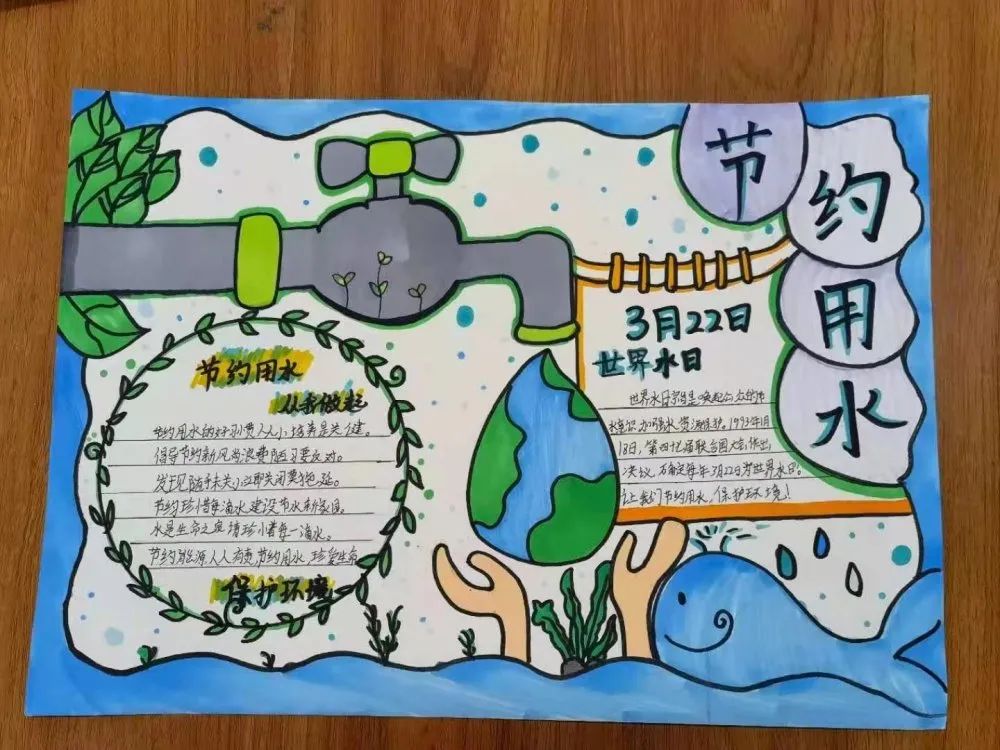 节约用水
节约用水
从我做起
节约用水的好习惯人人培养是关键。
倡导节约新风尚浪费陋习要反对。
发现随手关小立即关闭莫拖延。
节约珍惜每滴水建设节水新家园。
水是生命之源请珍惜每一滴水。
节约能源人人有责,节约用水,珍爱生命
保护环境
3月22日
世界水日
世界水日宗旨是唤起公众节
水意识,加强水资源保护。1993年1月
18日,第四十七届联合国大会作出
决议,确定每年3月22日为世界水日。
让我们节约用水,保护环境!